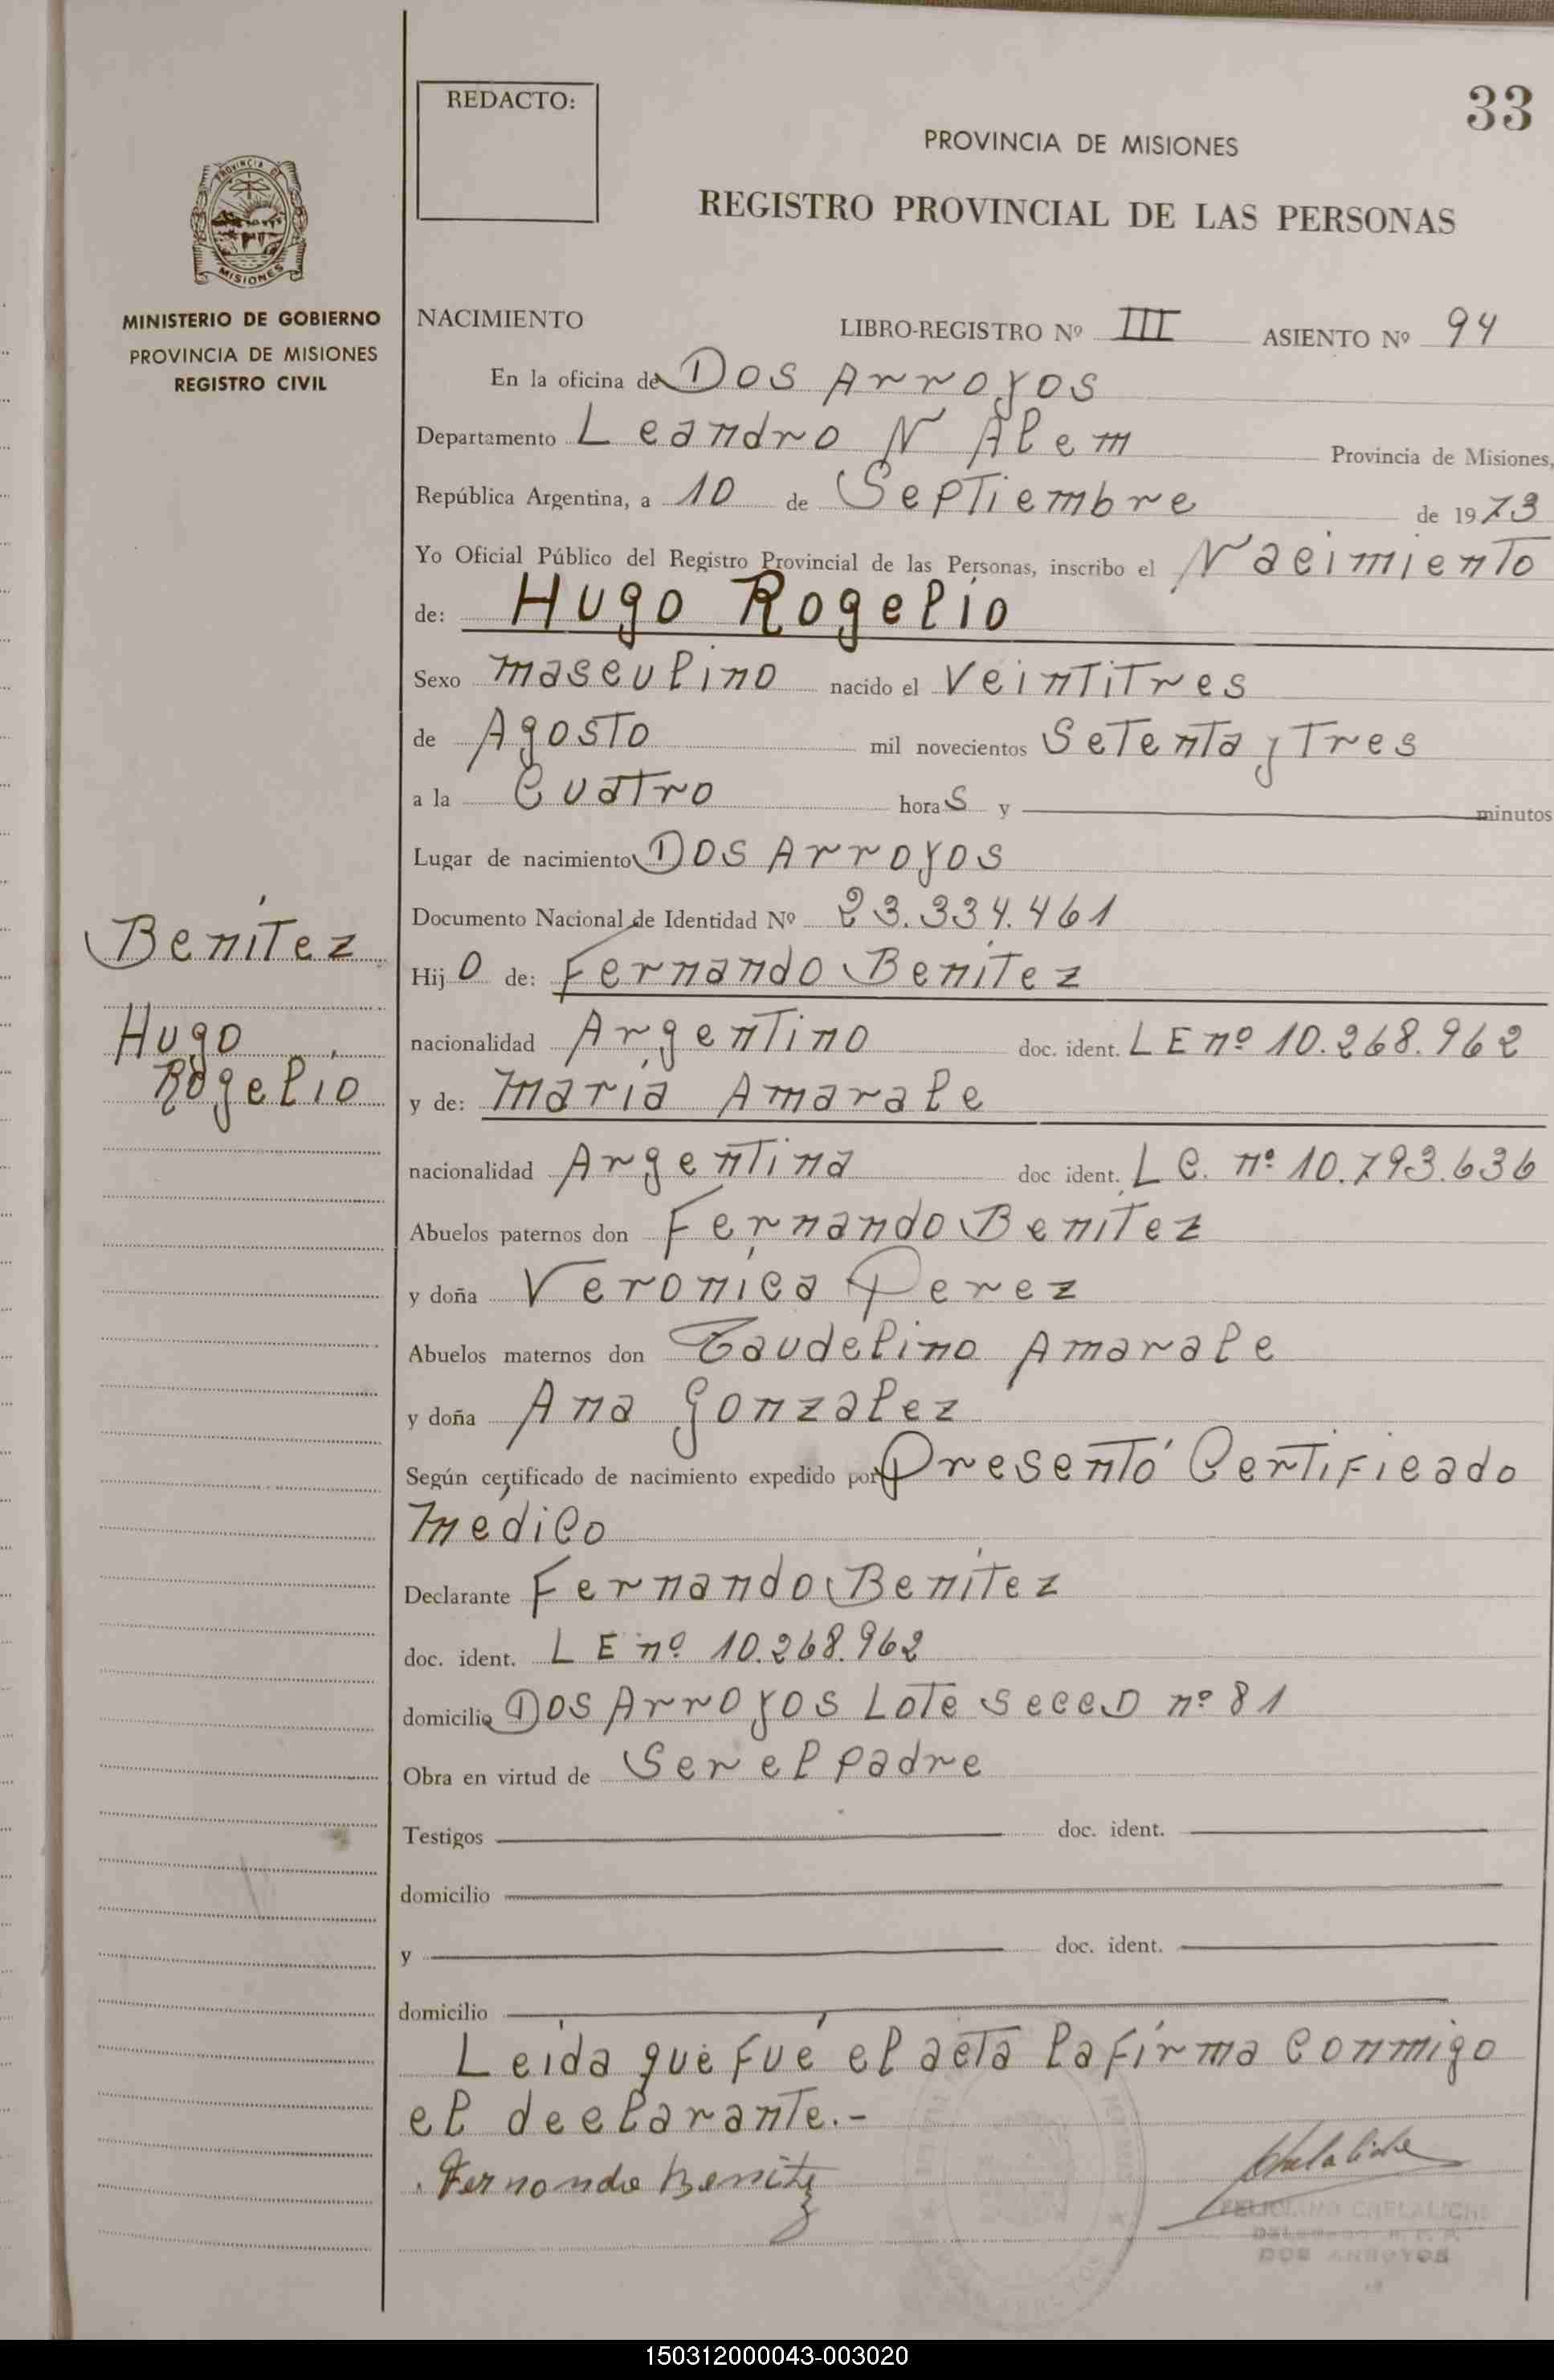 33
REDACTO:
PROVINCIA DE MISIONES
REGISTRO PROVINCIAL DE LAS PERSONAS
PROVINCIA DE
MISIONES
MINISTERIO DE GOBIERNO
PROVINCIA DE MISIONES
REGISTRO CIVIL
NACIMIENTO LIBRO-REGISTRO Nº III ASIENTO Nº 94
En la oficina de Dos Arroyos
Departamento Leandro N Alem Provincia de Misiones,
República Argentina, a 10 de Septiembre de 1973
Yo Oficial Público del Registro Provincial de las Personas, inscribo el Nacimiento
de: Hugo Rogelio
Sexo masculino nacido el Veintitres
de Agosto mil novecientos Setenta y Tres
a la Cuatro horas y minutos
Lugar de nacimiento Dos Arroyos
Documento Nacional de Identidad Nº 23.334.461
Benítez
Hijo de: Fernando Benítez
Hugo
Rogelio
nacionalidad Argentino doc. ident. LE nº 10.268.962
y de: María Amarale
nacionalidad Argentina doc ident. LC. nº 10.793.636
Abuelos paternos don Fernando Benítez
y doña Verónica Perez
Abuelos maternos don Laudelino Amarale
y doña Ana Gonzalez
Según certificado de nacimiento expedido por Presentó Certificado
Medico
Declarante Fernando Benítez
doc. ident. LE nº 10.268.962
domicilio Dos Arroyos Lote Secc D nº 81
Obra en virtud de Ser el padre
Testigos doc. ident.
domicilio
y doc. ident.
domicilio
Leída qué fué el acta la fírma conmigo
el declarante.-
Fernando Benitez
Chelaliche
FELICIANO CHELALICHE
DOS ARROYOS
150312000043-003020